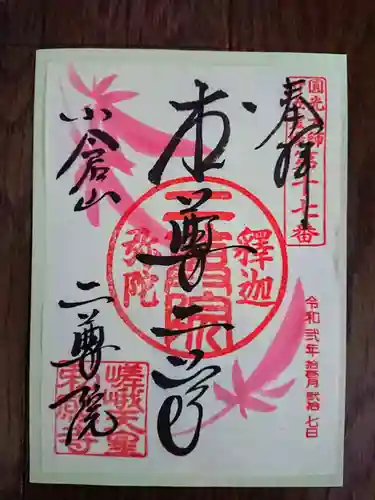 奉拝
圓光大師
第十七番
本尊二尊
釋迦
弥陀
二尊院
小倉山
二尊院
令和弐年拾壱月弐拾七日